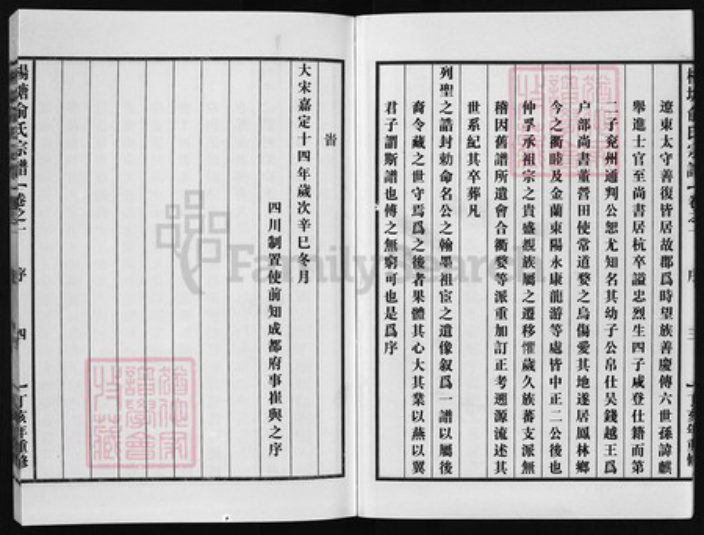 遼東太守善復皆居故郡爲時望族善慶傳六世孫諱麒
舉進士官至尚書居杭卒謚忠烈生四子咸登仕籍而第
二子兗州通判公恕尤知名其幼子公帛仕吳錢越王爲
户部尚書董營田使常道婺之烏傷愛其地遂居鳳林鄉
今之衢睦及金蘭東陽永康龍游等處皆中正二公後也
仲孚承祖宗之貴盛視族屬之遷移懼歲久族蕃支派無
稽因舊譜所遺會合衢婺等派重加訂正考遡源流述其
世系紀其卒葬凡
列聖之誥封勅命名公之翰墨祖宦之遺像叙爲一譜以屬後
裔令藏之世守焉爲之後者果體其心大其業以燕以翼
君子謂斯譜也傅之無窮可也是爲序
旹
大宋嘉定十四年歲次辛巳冬月
四川制置使前知成都府事崔與之序
楊塘俞氏宗譜
卷之一
序
三
丁亥年重修
楊塘俞氏宗譜
卷之一
序
四
丁亥年重修
FamilySearch